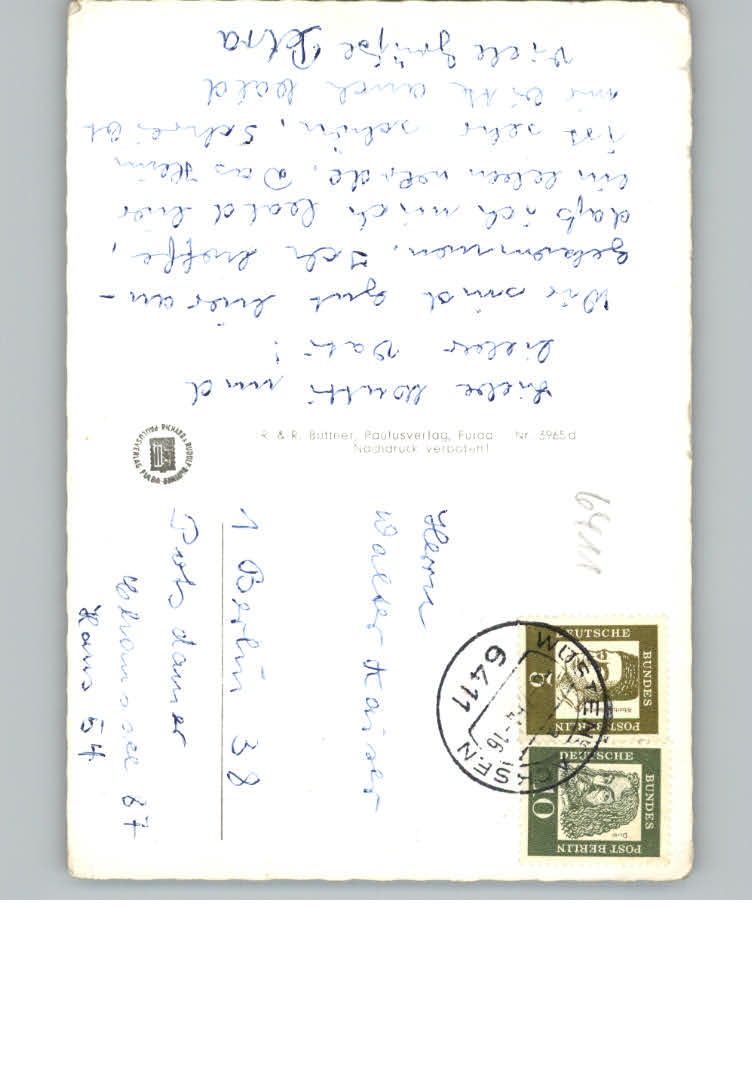 Liebe Mutti und
lieber Vati!
Wir sind gut hier an-
gekommen. Ich hoffe,
daß ich mich bald hier
ein leben werde. Das Heim
ist sehr schön, Schreibt
mir bitte auch bald
Viele Grüße Petra
R. & R. Büttner, Paulusverlag, Fulda Nr. 3965 d
Nachdruck verboten!
RICHARD & RUDOLF BÜTTNER PAULUSVERLAG FULDA
6411
DEUTSCHE
BUNDES
POST BERLIN
5
DEUTSCHE
BUNDES
POST BERLIN
10
Dürer
WÜSTENSACHSEN
6411
-16
Herrn
Walter Kaiser
1 Berlin 38
Potsdamer
Chaussee 87
Haus 54